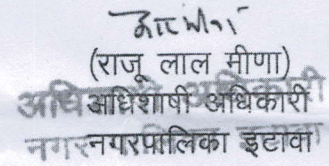 (राजू लाल मीणा)
अधिशाषी अधिकारी
नगरपालिका इटावा